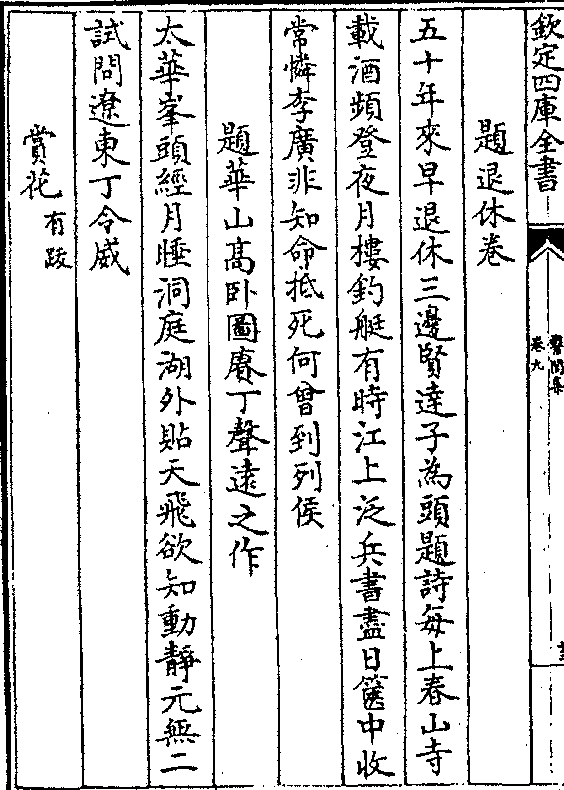 欽定四庫全書
醫閭集
卷九
題退休卷
五十年來早退休三邊賢達子為頭題詩每上春山寺
載酒頻登夜月樓釣艇有時江上泛兵書盡日篋中收
常憐李廣非知命抵死何曾到列侯
題華山高卧圖賡丁聲遠之作
太華峯頭經月睡洞庭湖外貼天飛欲知動靜元無二
試問遼東丁令威
賞花有跋